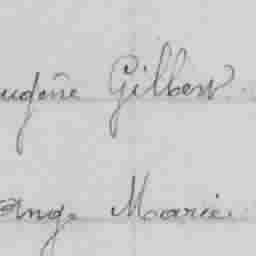 ugène Gilbert
ange Marie